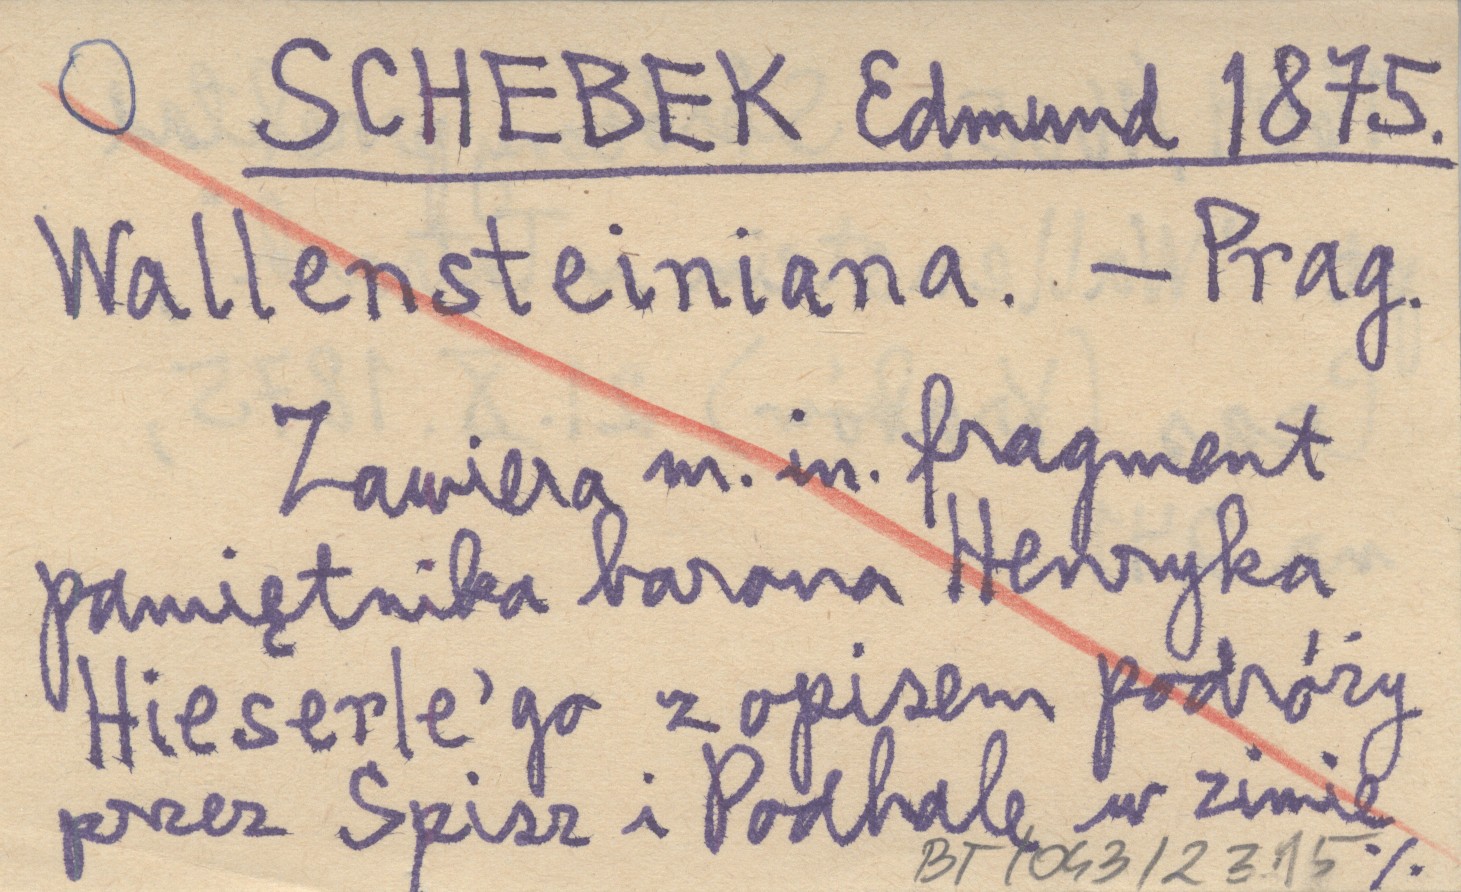 SCHEBEK Edmund 1875.
Wallensteiniana. — Prag.
Zawiera m. in. fragment
pamiętnika barona Henryka
Hieserle'go z opisem podróży
przez Spisz i Podhale w zimie
./.